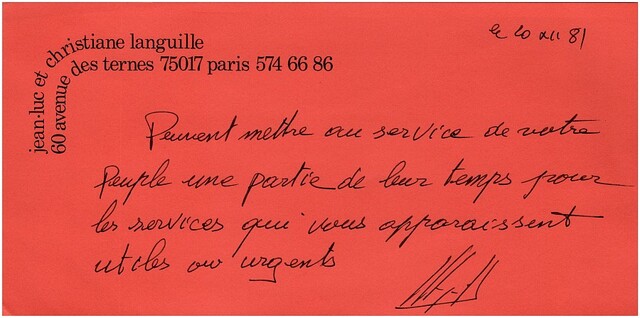 jean-luc et christiane languille
60 avenue des ternes 75017 paris 574 66 86
le 20 XII 81
Peuvent mettre au service de votre
Peuple une partie de leur temps pour
les services qui vous apparaissent
utiles ou urgents